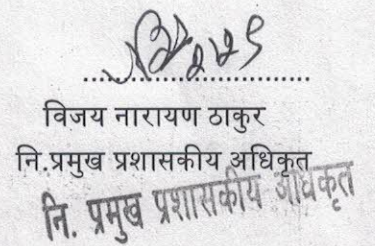 विजय नारायण ठाकुर
नि.प्रमुख प्रशासकीय अधिकृत
नि. प्रमुख प्रशासकीय अधिकृत